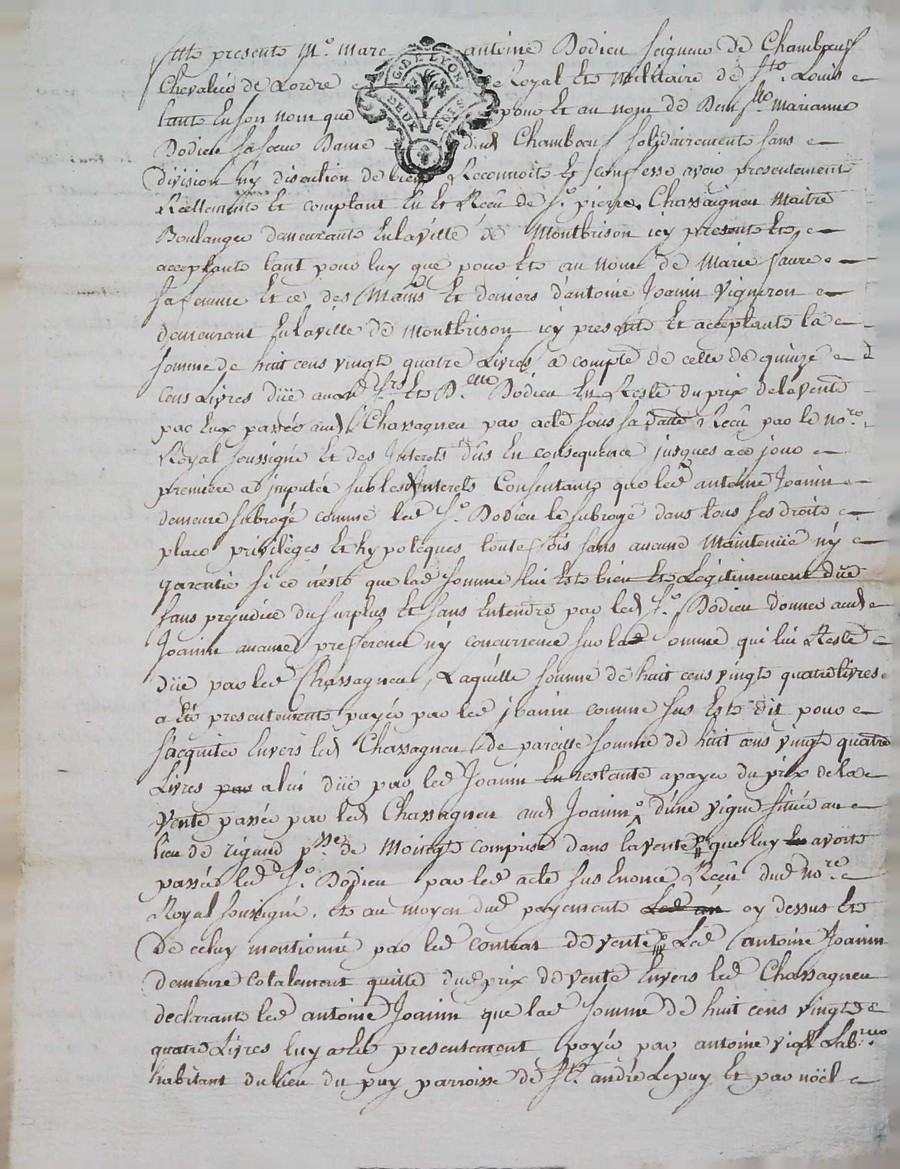 fut presente Mr. Marc antoine Dodieu Seigneur de Chambœuf
G. DE LYON
DEUX SOLS
Chevalier de Lordre Royal Et Militaire de St. Louis
tant En son nom que pour et au nom de Demlle Marianne
Dodieu sa sœur Dame dud Chambœuf solidairement sans
division ny discution de biens Reconnoit Et Confesse avoir presentement
Reellement Et comptant Eu Et Reçu de Sr. pierre Chassaigneu Maitre
Boulanger demeurant En la ville de Montbrison icy present Et
acceptant tant pour luy que pour Et au nom de Marie faure
sa femme Et ce des Mains Et deniers d'antoine Joanin Vigneron
demeurant En la ville de Montbrison icy present Et acceptant la
somme de huit cens vingt quatre Livres a compte de celle de quinze
Cens Livres düe aud Srs. Et Delle Dodieu En Reste du prix de la vente
par Eux passée aud Chassagneu par acte sous sa datte Reçu par le nore
Royal soussigné Et des Interets dûs En consequence jusques a ce jour
premiere a imputer sur les Interets Consentant que led antoine Joanin
demeure subrogé comme led Sr. Dodieu le subroge dans tous ses droits
place privilèges Et hypoteques toutefois sans aucune Maintenüe ny
garentie si ce n'est que lad somme lui Est bien Et Legitimement düe
sans prejudice du surplus Et sans Entendre par led Sr. Dodieu donner aud
Joanin aucune prefference ny concurrence sur la somme qui lui Reste
düe par led Chassagneu, Laquelle somme de huit cens vingt quatre livres
a Eté presentement payée par led joanin comme sus Est dit pour
s'acquiter Envers led Chassagneu de pareille somme de huit cens vingt quatre
Livres par a lui düe par led Joanin En restante a payer du prix de la
Vente passée par led Chassagneu aud Joanin d'une vigne située au
lieu de rigaud psse de Moingt comprise dans la vente que luy En avoit
passée led Sr. Dodieu par led acte sus Enoncé Reçu dud nore
Royal soussigné. Et au moyen dud payement cy dessus Et
de celuy mentionné par led contrat de vente Led antoine Joanin
demeure totalement quitte dud prix de vente Envers led Chassagneu
declarant led antoine Joanin que lad somme de huit cens vingt
quatre Livres luy a Eté presentement payée par antoine vial Labreur
habitant du lieu du puy parroisse de St. andré Le puy Et par noël